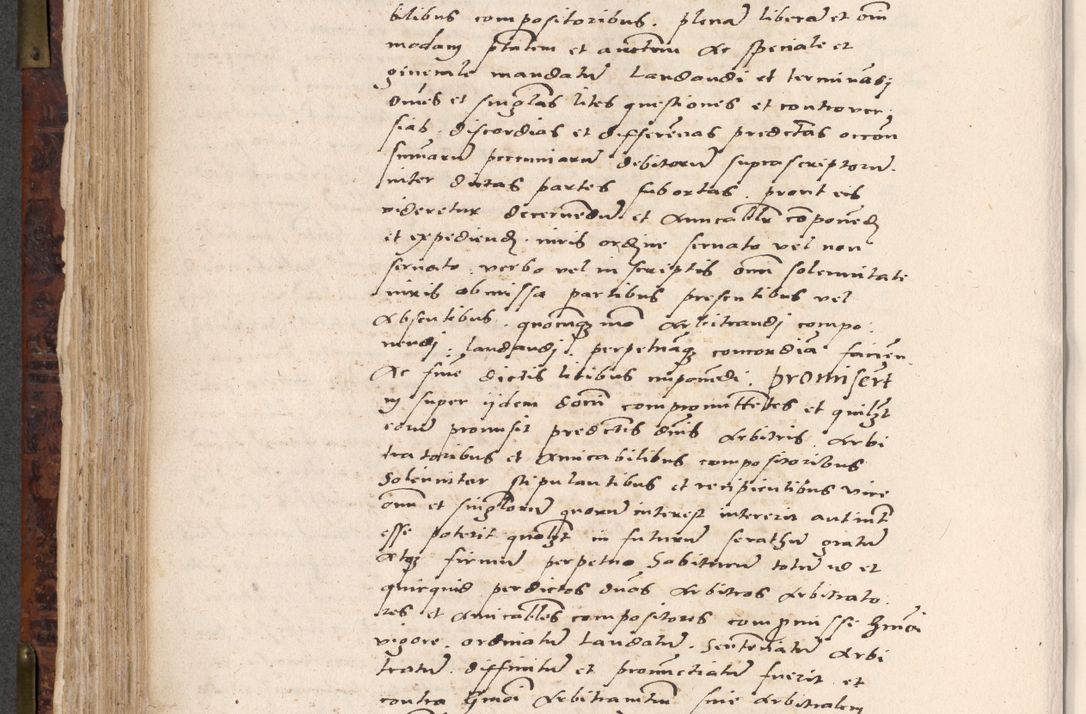 bilibus compositoribus. plenã liberã et om̃
modam ptãtem et auctem ac speciale et
generale mandatũ Laudandi et terminãdj
Om̃es et singlas lites questiones et controver
sias. discordias et differẽtias predictas occõn
sum̃arũ peccuniarũ debitorũ suprascriptorũ.
inter dictas partes subortas. prout eis
videretur decernendũ et amicabilr componẽdj
et expediendj. iuris ordine servato vel non
servato. verbo vel in scriptis om̃i solemnitate
iuris obmissa partibus presentibus vel
absentibus. quocũq; mõ arbitrandj compo
nendj. laudandj. perpetuãq; concordiã faciẽn
Ac fine dictis litibus imponẽdi. Promisert
in super ijdem dom̃ compromittẽtes et quilzt
eorũ promisit predictis dñis Arbitris. Arbi
tratoribus et Amicabilibus compositoribus
Solemniter stipulantibus et recipientibus vice
om̃i et singlorũ quorũ interest intererit aut int
esse poterit quolzt in futurũ seratũ gratũ
atq; firmũ perpetuo habiturũ totũ id et
quicquid per dictos dños Arbitros Arbitrato
res et Amicabiles compositores compuisse hmõi
vigore. ordinatũ Laudatũ. Sententiatũ Arbi
tratũ. diffinitũ et pronunctiatũ fuerit. et
contra hmõi Arbitramentũ sive Arbitralem